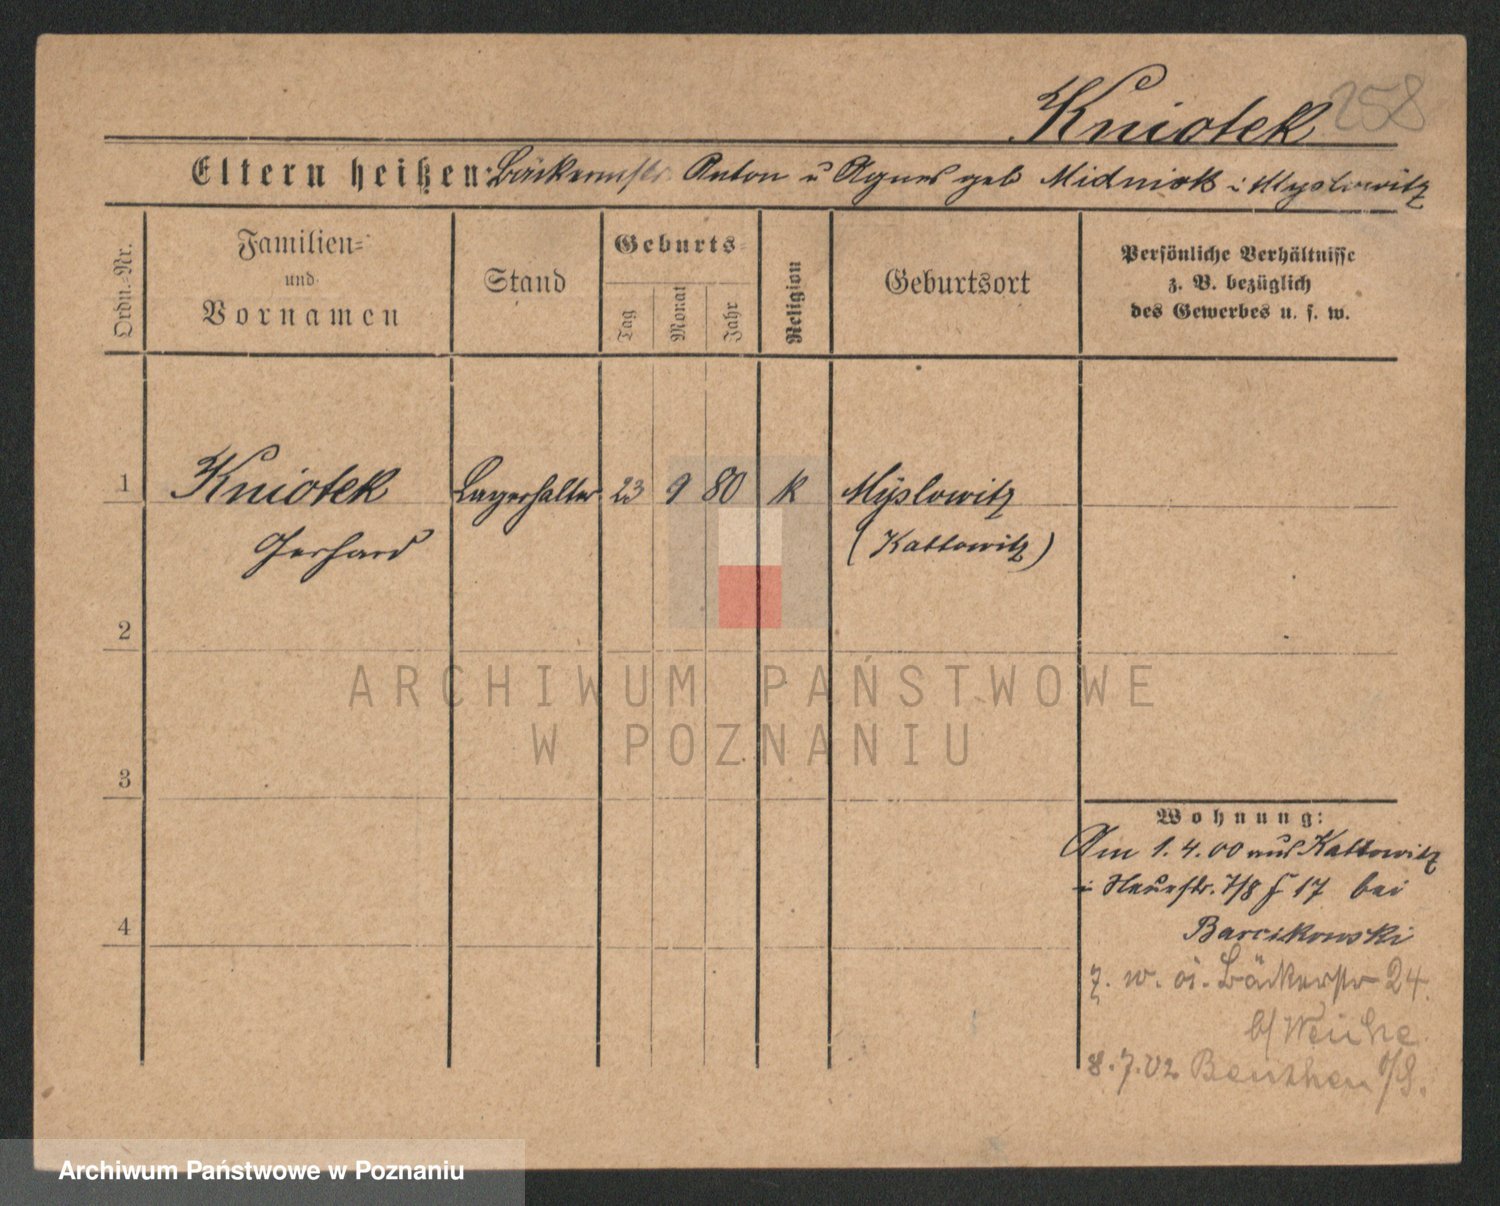 Kniotek 258
Eltern heißen: Bäckermstr. Anton u Agnes geb Midniok i Myslowitz
Ordn.-Nr.
Familien-
und
Vornamen
Stand
Geburts-
Tag
Monat
Jahr
Religion
Geburtsort
Persönliche Verhältnisse
z. B. bezüglich
des Gewerbes u. s. w.
1 Kniotek Lagerhalter 23 9 80 k Myslowitz
Gerhard (Kattowitz)
2
ARCHIWUM PAŃSTWOWE
W POZNANIU
3
Wohnung:
Am 1.4.00 aus Kattowitz
i Neuestr. 7/8 17 bei
4 Barcikowski
z. w. Bäckerstr 24.
b/
8.7.02 Beuthen O/S.
Archiwum Państwowe w Poznaniu